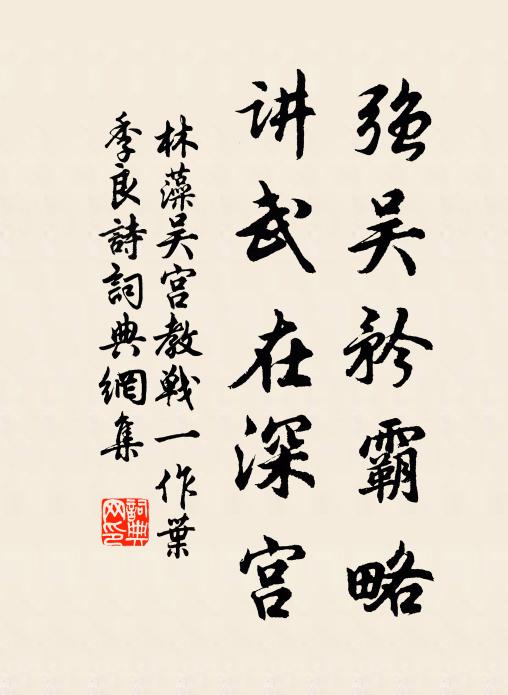 强吴矜霸略
讲武在深宫
林藻吴宫教戰一作葉
季良詩詞典網集
詞典网印